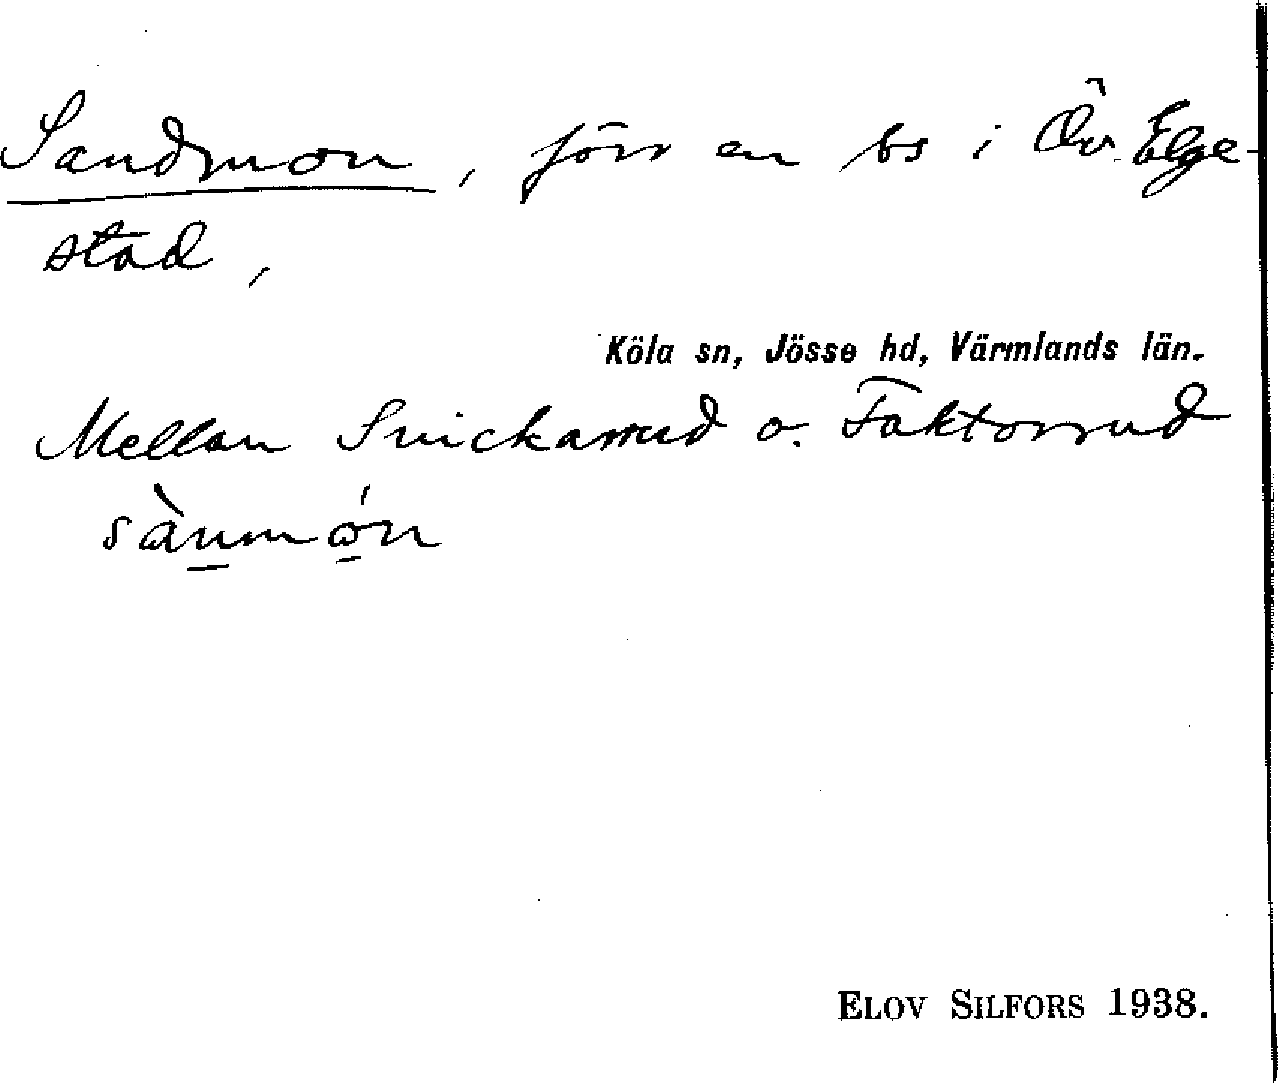 Sandmon, förr en bs i Öv. Elge-
stad,
Köla sn, Jösse hd, Värmlands län.
Mellan Snickarrud o. Faktorrud
sànmón
ELOV SILFORS 1938.